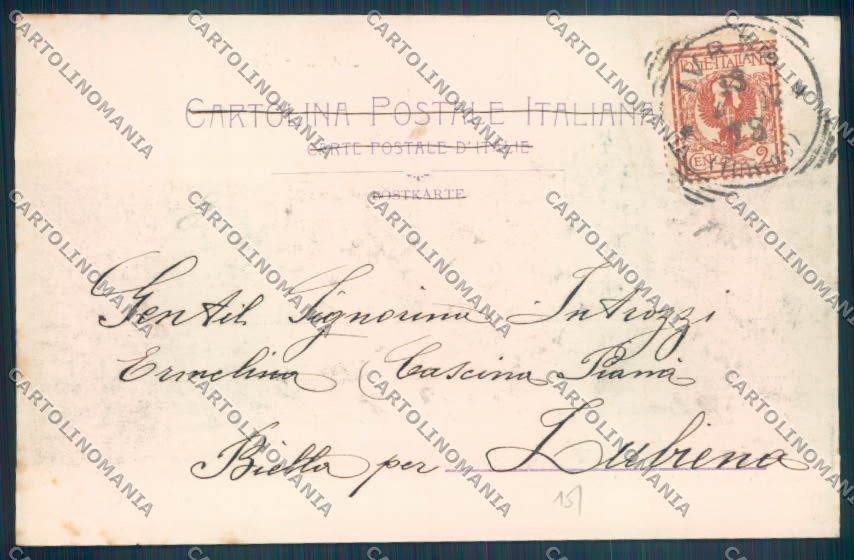 CARTOLINA POSTALE ITALIANA
CARTE POSTALE D'ITALIE
POSTKARTE
POSTE ITALIANE
CENT. 2
Gentil Signorina Introzzi
Ermelina (Cascina Piana
Biella per Zubiena
15/
CARTOLINOMANIA